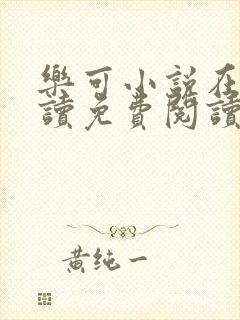 樂可小說在
讀免費閱讀
黃純一